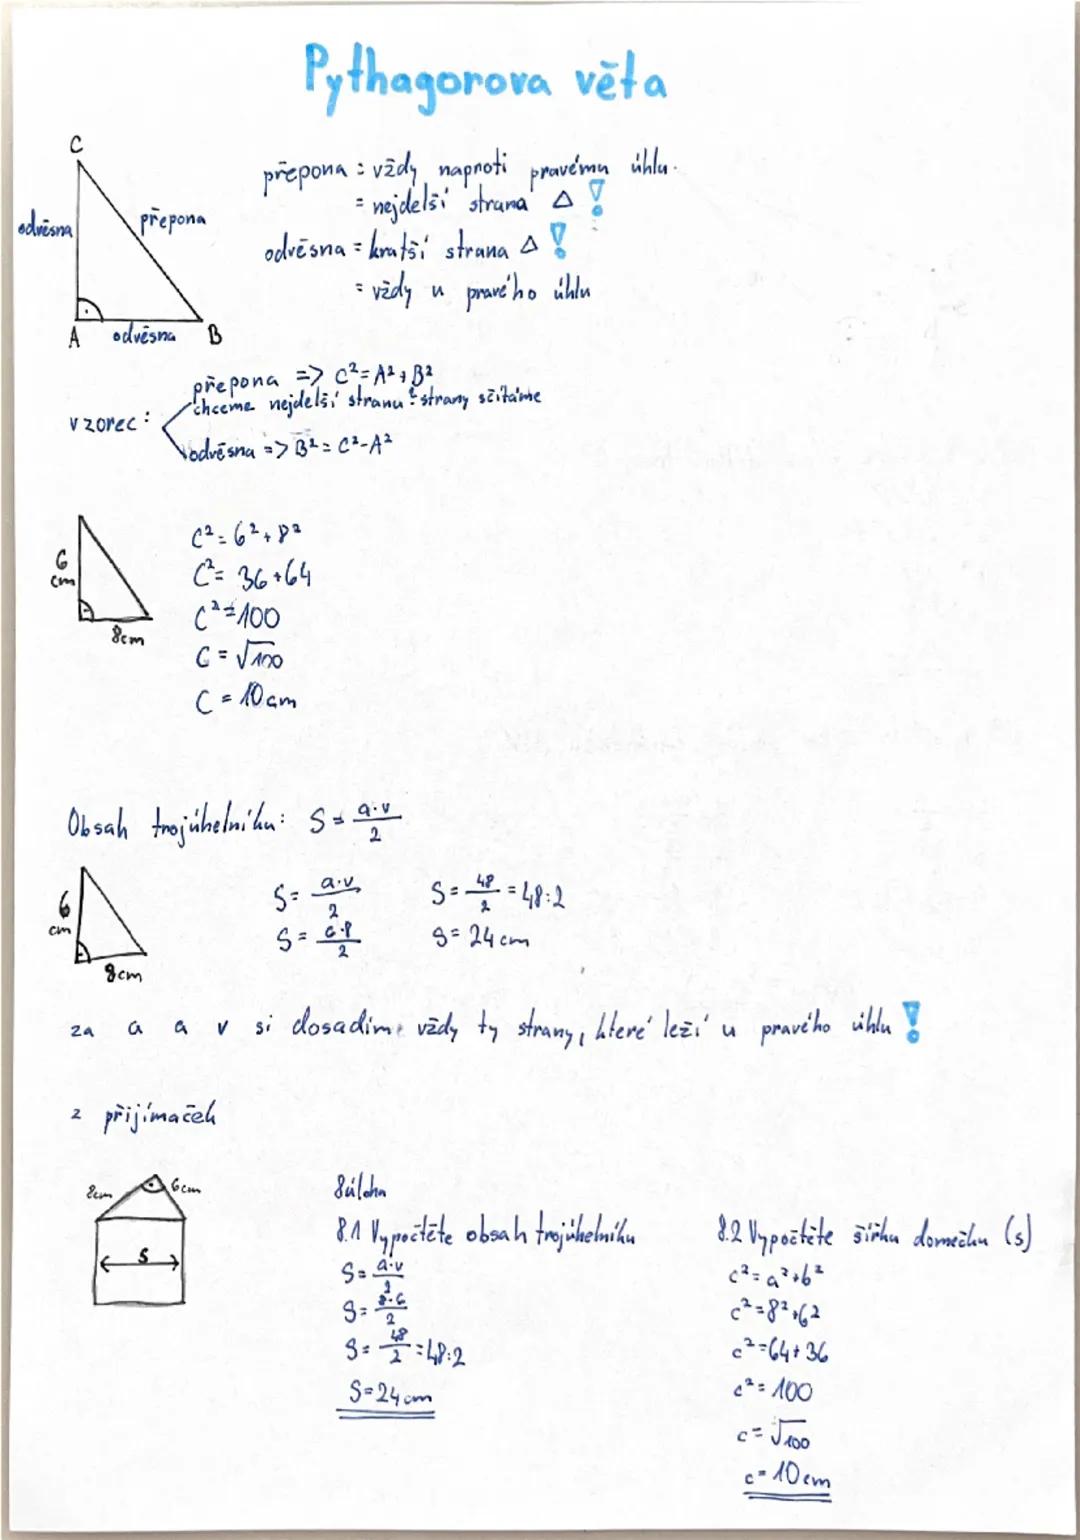 Pythagorova věta
C
odvěsna
přepona
A
odvěsna
B
přepona = vždy naproti pravému úhlu.
= nejdelší strana △ !
odvěsna = kratší strana △ !
= vždy u pravého úhlu
vzorec:
přepona => C²=A²+B²
chceme nejdelší stranu = strany sčítáme
odvěsna => B²=C²-A²
6
cm
8cm
C²=6²+8²
C²=36+64
C²=100
C=√100
C=10cm
Obsah trojúhelníku: S=a·v/2
6
cm
8cm
S=a·v/2
S=6·8/2
S=48/2=48:2
S=24cm
za a a v si dosadíme vždy ty strany, které leží u pravého úhlu !
z přijímaček
8cm
6cm
S
8úloha
8.1 Vypočtěte obsah trojúhelníku
S=a·v/2
S=8·6/2
S=48/2=48:2
S=24cm
8.2 Vypočtěte šířku domečku (s)
c²=a²+b²
c²=8²+6²
c²=64+36
c²=100
c=√100
c=10cm